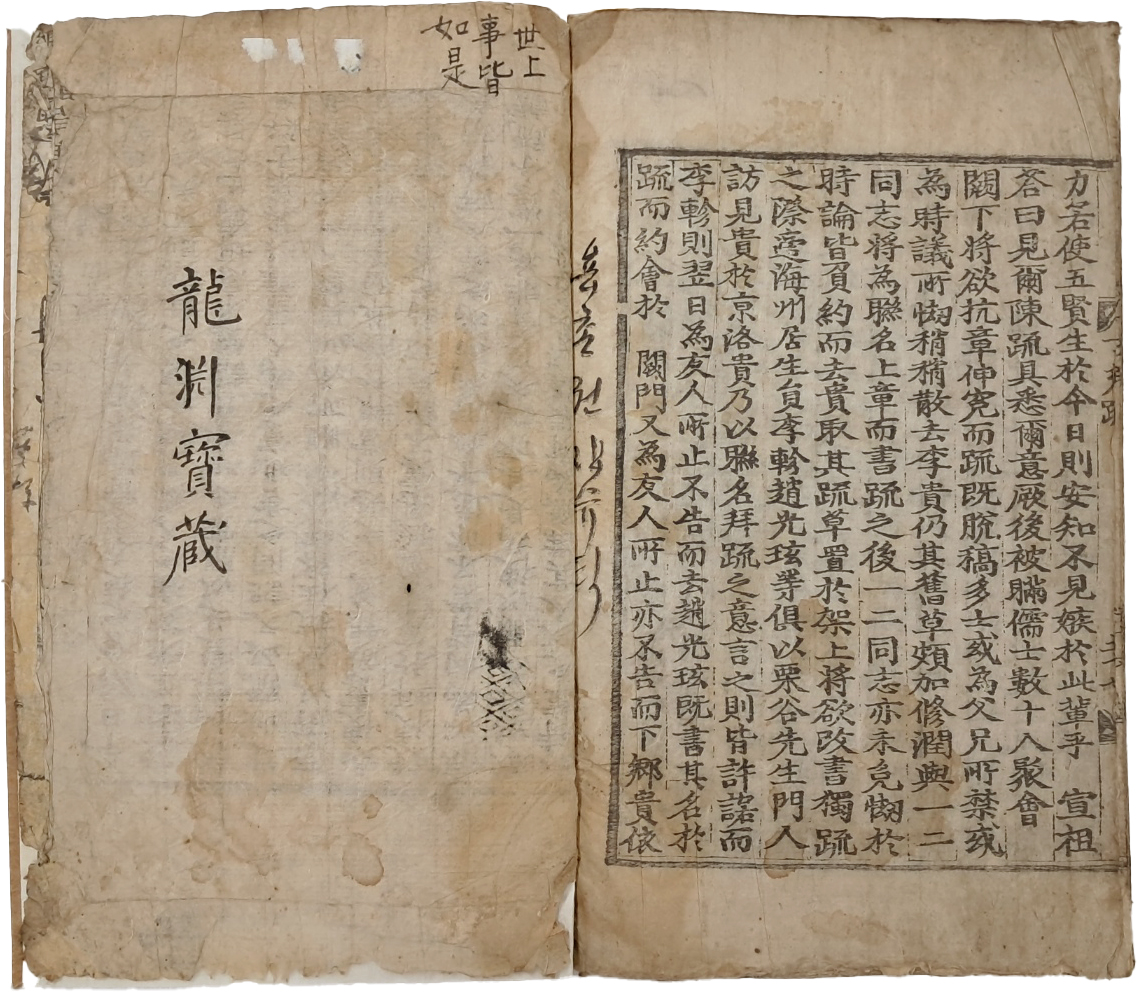 力若使五賢生於今日則安知不見嫉於此輩乎 宣祖
答曰見爾陳疏具悉爾意厥後被瞞儒士數十人聚會
闕下將欲抗章伸寃而疏既脫稿多士或為父兄所禁或
為時議所㥘稍稍散去李貴仍其舊草頗加修潤與一二
同志將為聯名上章而書疏之後一二同志亦未免㥘於
時論皆負約而去貴取其疏草置於架上將欲改書獨疏
之際適海州居生員李軫趙光玹等俱以栗谷先生門人
訪見貴於京洛貴乃以聯名拜疏之意言之則皆許諾而
李軫則翌日為友人所止不告而去趙光玹既書其名於
疏而約會於 闕門又為友人所止亦不告而下鄉貴依
世上
事皆
如是
龍淵寶藏